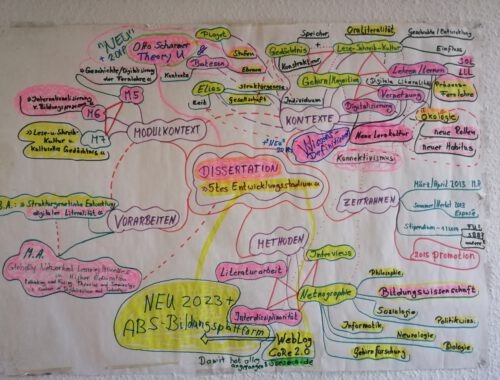 "NEU"
+ 2018
Otto Scharmer
Theory U
Piaget
Bateson
Elias
Stufen
Ebenen
Strukturgenese
Gesellschaft
Zeit
Kontexte
»Geschichte/Digitalisierung
der Fernlehre«
M5
M6
M7
»Internationalisierung
»Lese- u. Schreib-
Kultur u.
Kulturelles Gedächtnis«
MODULKONTEXT
Speicher
+
Gedächtnis
Konstruktion
Gehirn/Kognition
Individuum
KONTEXTE
Oralität
Lese-Schreib-Kultur
Geschichte/Entwicklung
Einfluss
Lehren/Lernen
(Digitale Literalität)
Vernetzung
Digitalisierung
Neue Lernkultur
Konnektivismus
Fernlehre
Ökologie
neue Rollen
neuer Habitus
"NEU"
Wissen
DISSERTATION
»5tes Entwicklungsstadium«
ZEITRAHMEN
März/April 2013 M.A.
Sommer/Herbst 2013
Exposé
Stipendium
andere
2015 PROMOTION
B.A.: »Strukturgenetische Entwicklung
digitaler Literalität«
VORARBEITEN
M.A.
Globally Networked Learning
Higher Education
METHODEN
Literaturarbeit
Interdisziplinarität
Interviews
Netnographie
Philosophie,
Bildungswissenschaft
Soziologie
Politikwiss.
Informatik,
Neurologie
Biologie
Gehirnforschung
NEU 2023 +
ABS-Bildungsplattform
WEBLOG
CoRe 2.0
Damit hat alles
angefangen